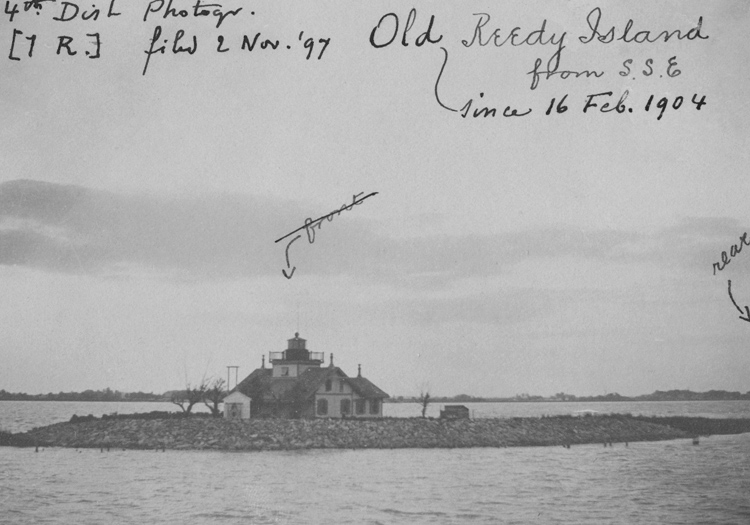 4th Dist Photogr.
[7 R.] filed 2 Nov. '97
Old Reedy Island
from S.S.E
since 16 Feb. 1904
front
rear